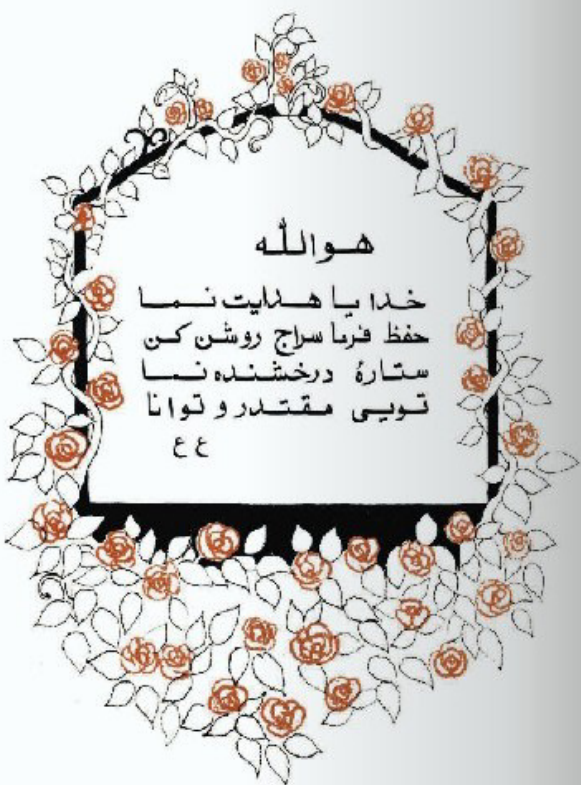 هو الله
خدایا هدایت نما
حفظ فرما سراج روشن کن
ستارهٔ درخشنده نما
تویی مقتدر و توانا
ع ع